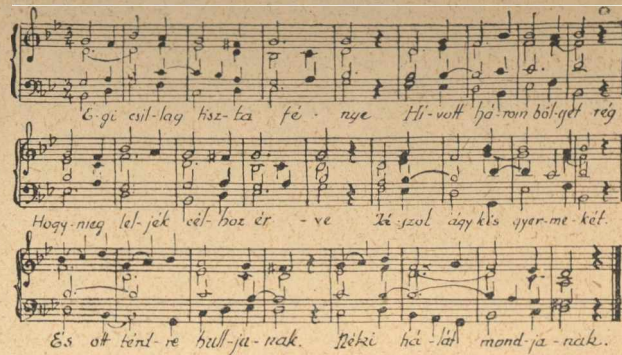 É-gi csil-lag tisz-ta fé - nye Hí-vott há-rom böl-cset rég
Hogy-meg lel-jék cél-hoz ér - ve Já-szol ágy kis gyer-me-két.
És ott térd-re hull-ja-nak. Néki há-lát mond-ja-nak.